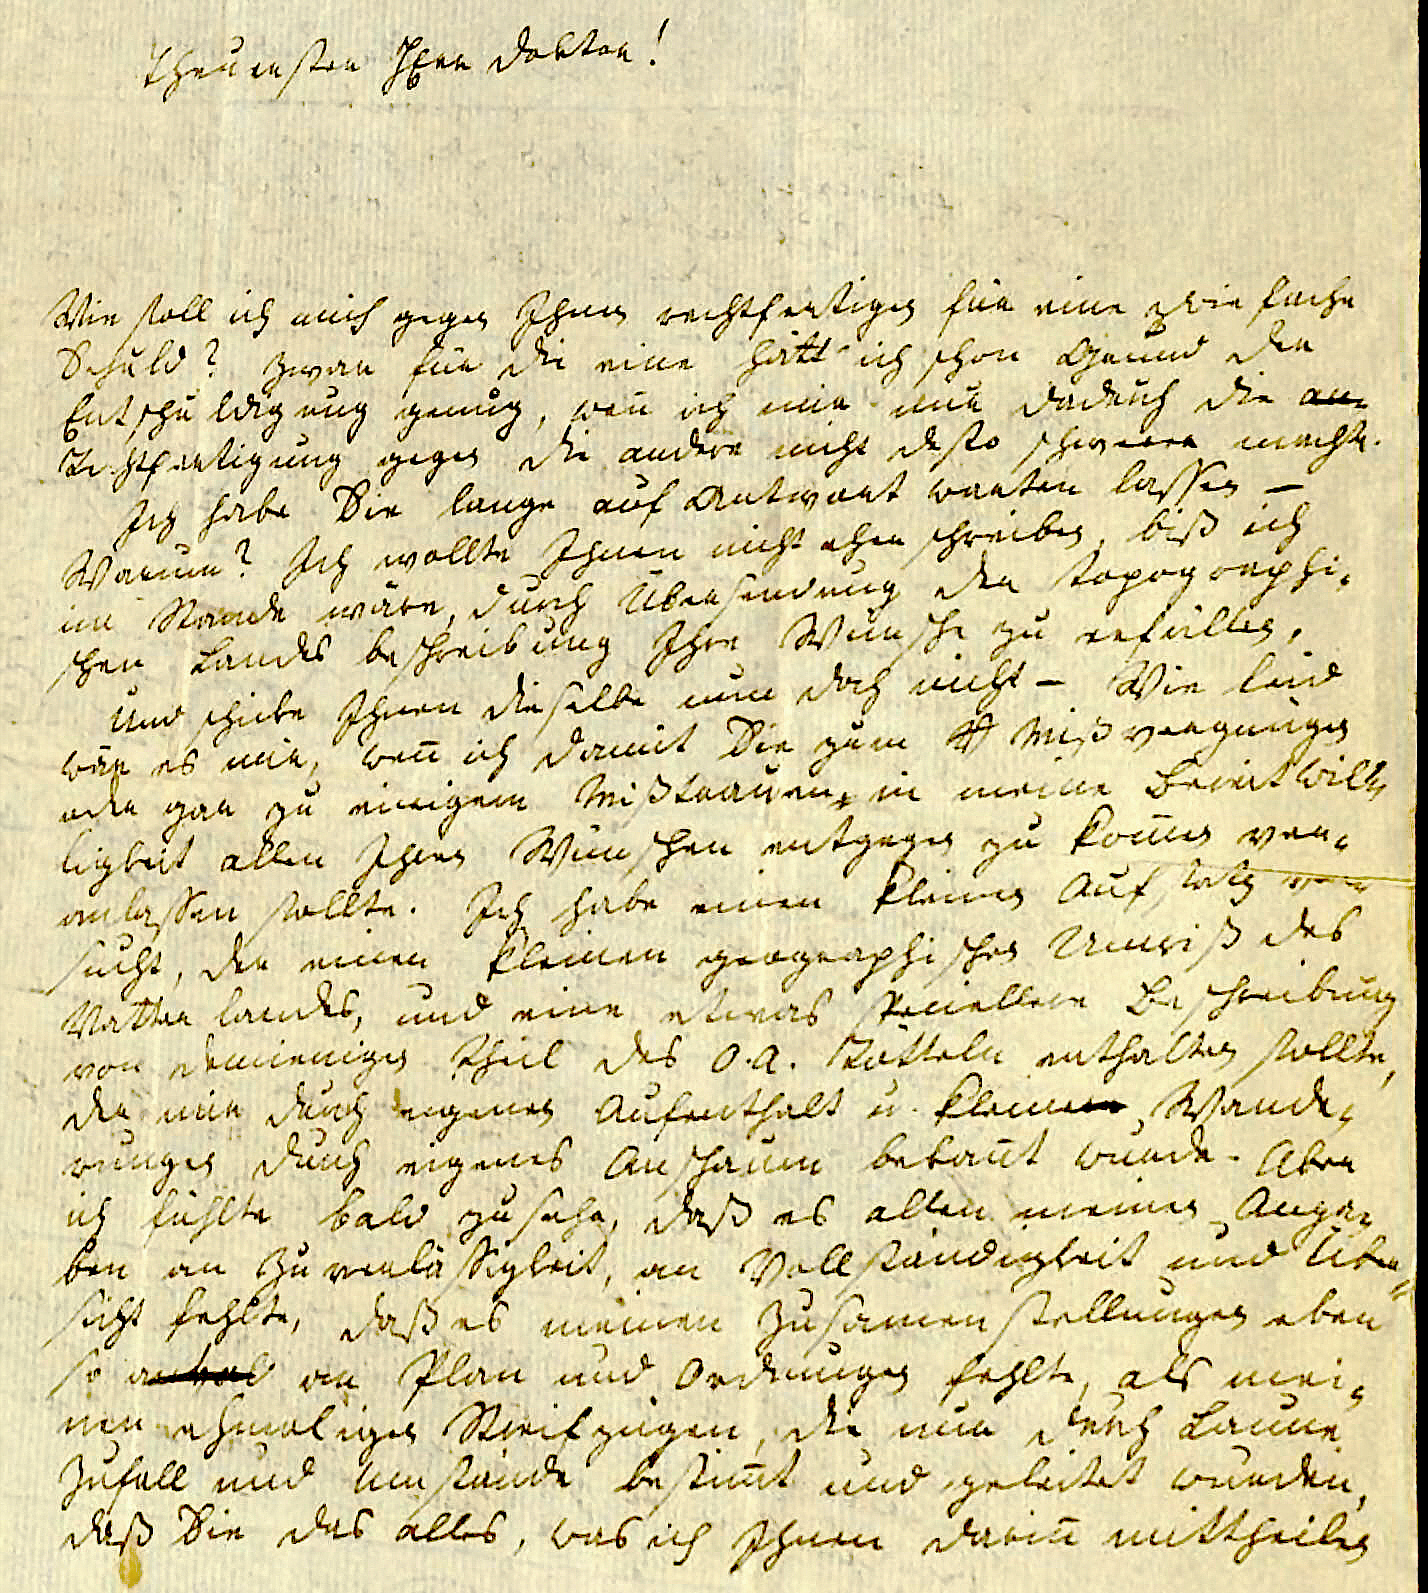 Theuerster Herr Doktor!
Wie soll ich mich gegen Ihnen rechtfertigen für eine zwiefache
Schuld? Zwar für die eine hätt' ich schon Grund der
Entschuldigung genug, wen̄ ich mir nur dadurch die
Rechtfertigung gegen die andere nicht desto schwerer machte.
Ich habe Sie lange auf Antwort warten lassen —
Warum? Ich wollte Ihnen nicht eher schreiben, biß ich
im Stande wäre, durch Übersendung der topographi-
schen Landes beschreibung Ihre Wünsche zu erfüllen,
Und schicke Ihnen dieselbe nun doch nicht — Wie leid
wär es mir, wen̄ ich damit Sie zum Mißvergnügen
oder gar zu einigem Mißtrauen in meine Bereitwil-
ligkeit allen Ihren Wünschen entgegen zu kom̄en ver-
anlassen sollte. Ich habe einen kleinen Aufsatz ver-
sucht, der einen kleinen geographischen Umriß des
Vatterlandes, und eine etwas speciellere Beschreibung
von demienigen Theil des O.A. Rötteln enthalten sollte,
der mir durch eigenen Aufenthalt u. kleine Wande-
rungen durch eigenes Anschauen bekan̄t wurde. Aber
ich fühlte bald zusehr, daß es allen meinen Anga-
ben an Zuverläßigkeit, an Vollständigkeit und Über-
sicht fehlte, daß es meinen Zusamenstellungen eben
so an Plan und Ordnungen fehlte, als mei-
nen ehmaligen Streifzügen, die nur durch Laune
Zufall und Umstände bestim̄t und geleitet wurden,
daß Sie das alles, was ich Ihnen darin̄ mittheilen